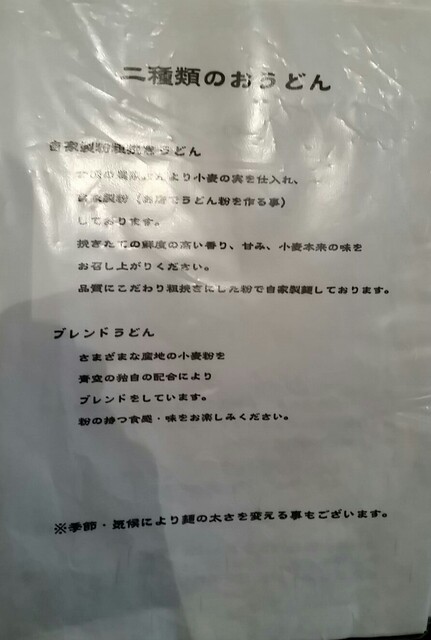 二種類のおうどん
自家製粉粗挽きうどん
より小麦の実を仕入れ、
自家製粉（お店でうどん粉を作る事）
しております。
挽きたての鮮度の高い香り、甘み、小麦本来の味を
お召し上がりください。
品質にこだわり粗挽きにした粉で自家製麺しております。
ブレンドうどん
さまざまな産地の小麦粉を
青空の独自の配合により
ブレンドをしています。
粉の持つ食感・味をお楽しみください。
※季節・気候により麺の太さを変える事もございます。